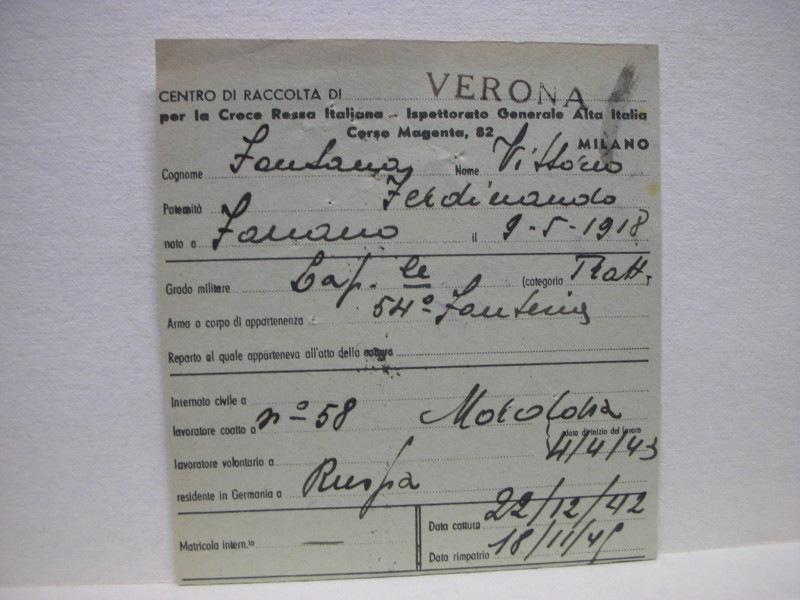 CENTRO DI RACCOLTA DI VERONA
per la Croce Rossa Italiana - Ispettorato Generale Alta Italia
Corso Magenta, 82
MILANO
Cognome Fontana Nome Vittorio
Paternità Ferdinando
nato a il 9-5-1918
Grado militare Cap.le (categoria Tratt.
Arma o corpo di appartenenza 54º Fanteria
Reparto al quale apparteneva all'atto della cattura
Internato civile a
lavoratore coatto a nº 58
data di inizio del lavoro
lavoratore volontario a 4/4/43
residente in Germania a Russia
Data cattura 22/12/42
Matricola intern.to —
Data rimpatrio 18/11/45